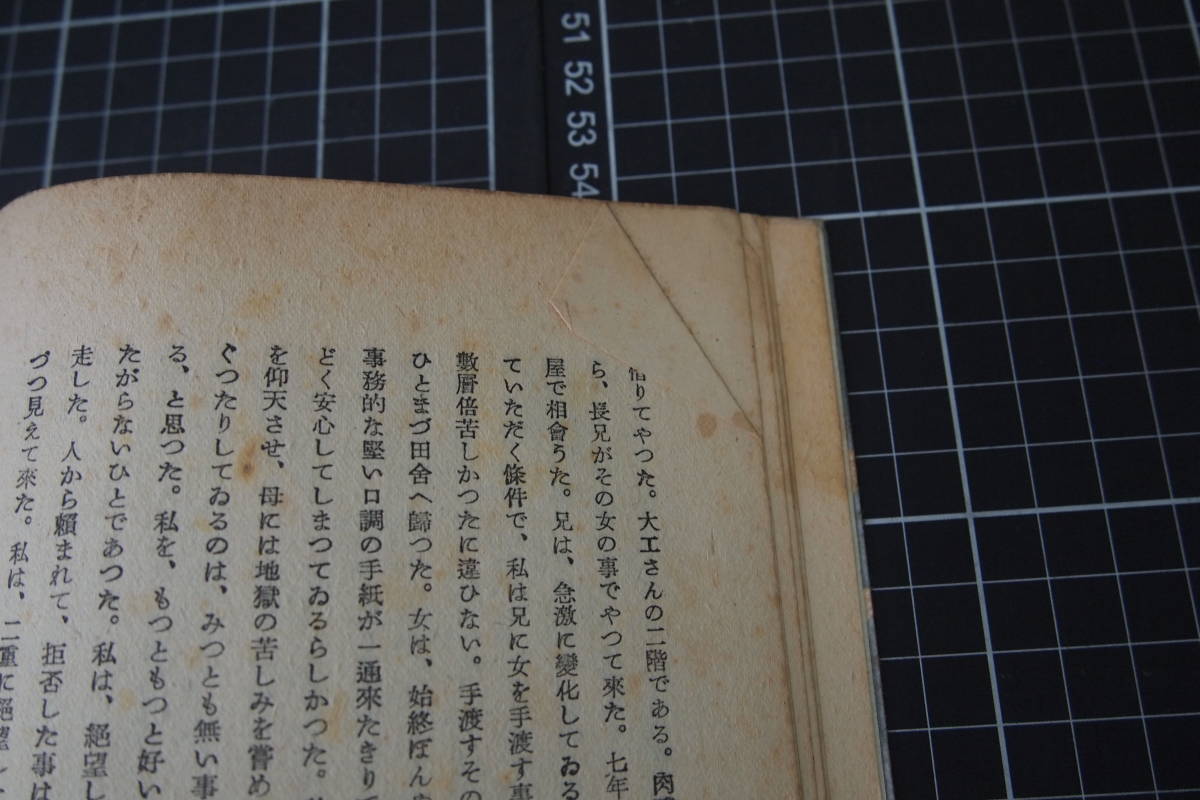 51
52
53
54
借りてやつた。大工さんの二階である。肉
ら、長兄がその女の事でやつて來た。七年
屋で相會うた。兄は、急激に變化してゐる
ていただく條件で、私は兄に女を手渡す事
數層倍苦しかつたに違ひない。手渡すその
ひとまづ田舍へ歸つた。女は、始終ぼん
事務的な堅い口調の手紙が一通來たきり
どく安心してしまつてゐるらしかつた。
を仰天させ、母には地獄の苦しみを嘗め
ぐつたりしてゐるのは、みつとも無い事
る、と思つた。私を、もつともつと好い
たがらないひとであつた。私は、絕望し
走した。人から賴まれて、拒否した事は
づつ見えて來た。私は、二重に絕望し